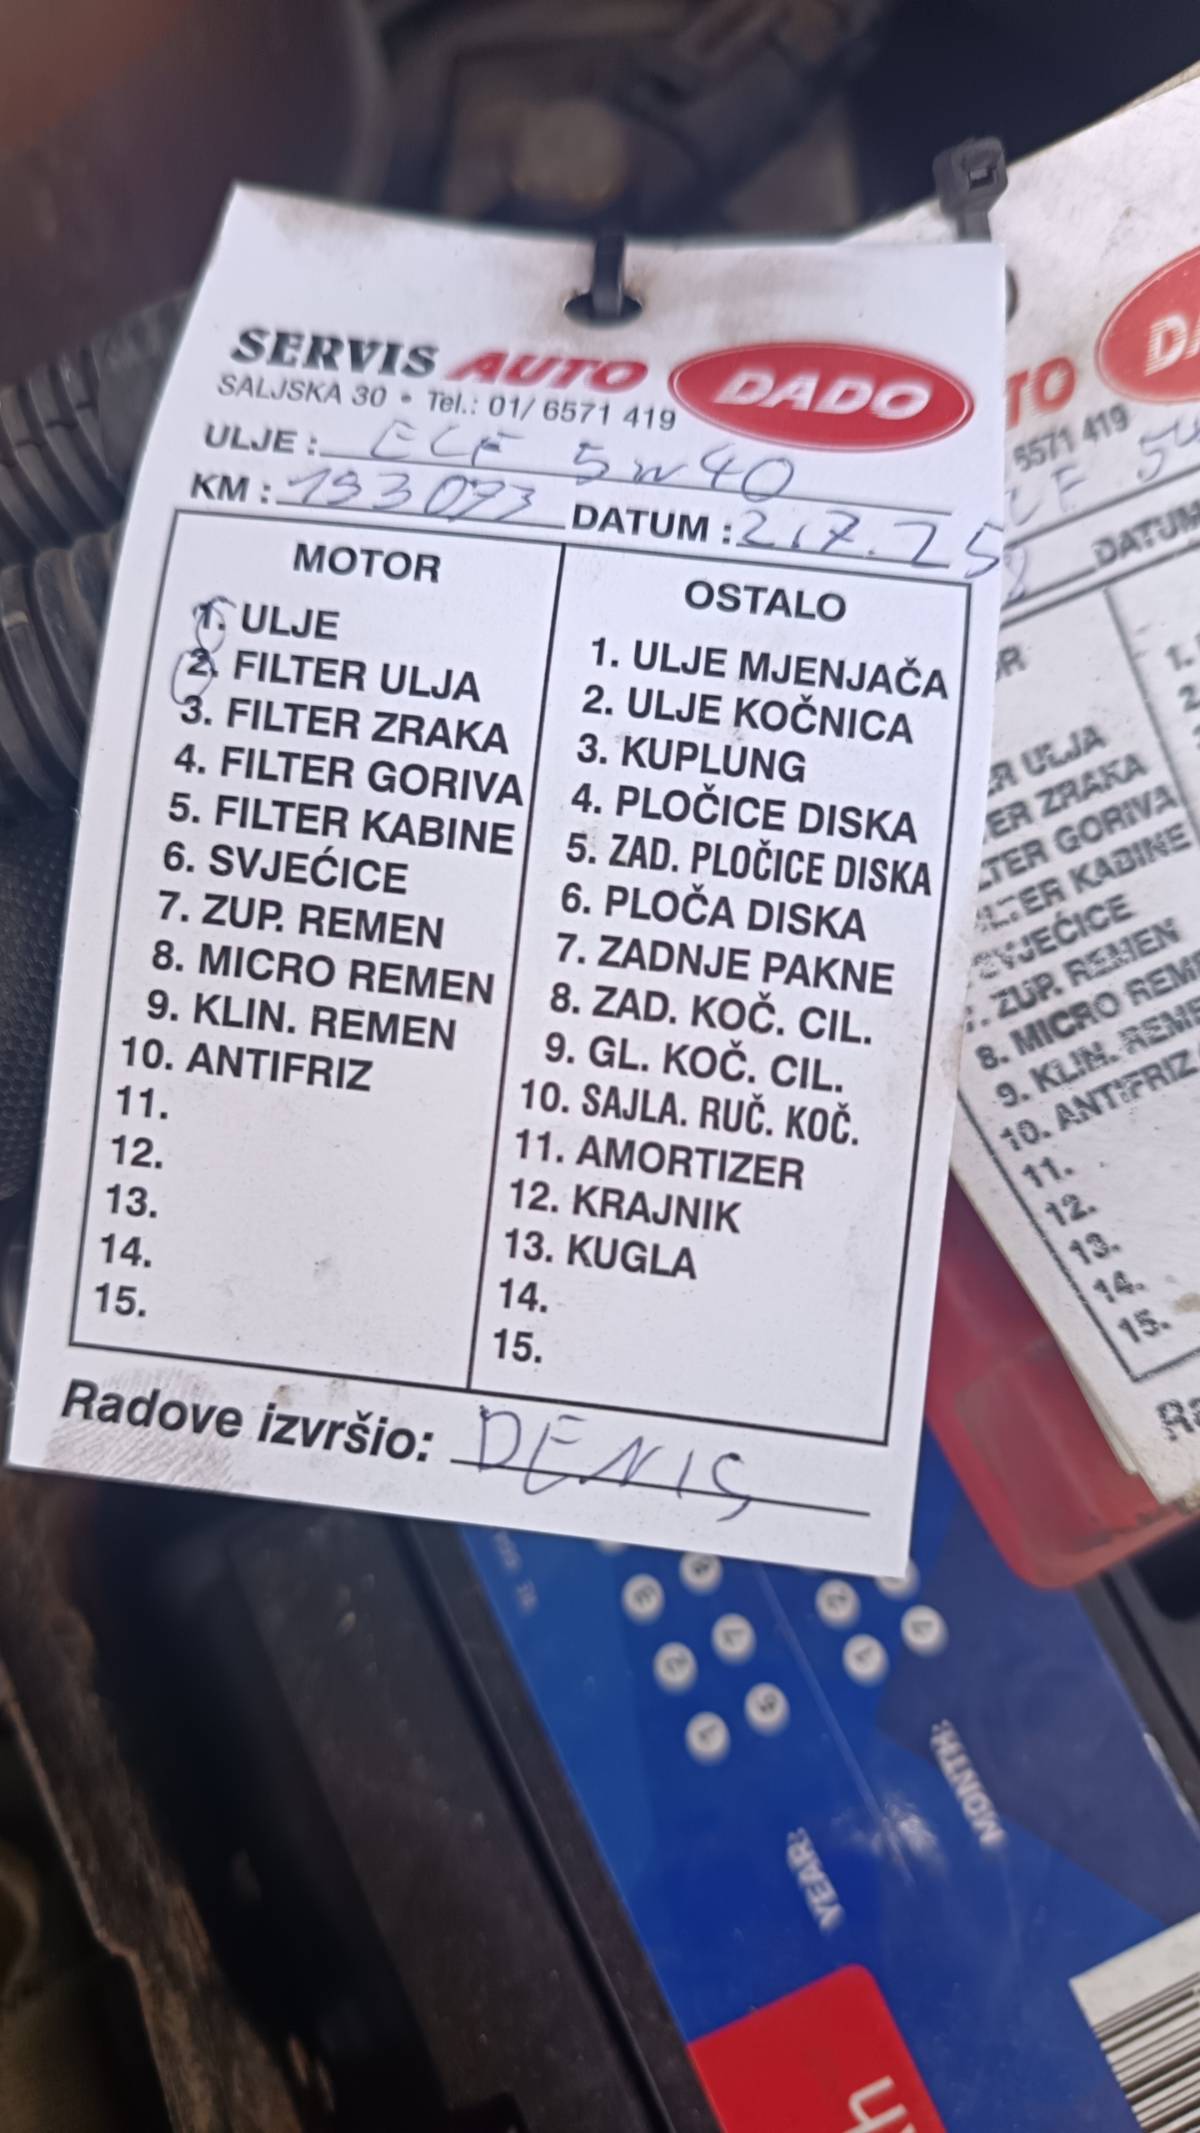 SERVIS AUTO DADO
SALJSKA 30 • Tel.: 01/ 6571 419
ULJE : ELF 5w40
KM : 193073 DATUM : 2.7.25
MOTOR
1. ULJE
2. FILTER ULJA
3. FILTER ZRAKA
4. FILTER GORIVA
5. FILTER KABINE
6. SVJEĆICE
7. ZUP. REMEN
8. MICRO REMEN
9. KLIN. REMEN
10. ANTIFRIZ
11.
12.
13.
14.
15.
OSTALO
1. ULJE MJENJAČA
2. ULJE KOČNICA
3. KUPLUNG
4. PLOČICE DISKA
5. ZAD. PLOČICE DISKA
6. PLOČA DISKA
7. ZADNJE PAKNE
8. ZAD. KOČ. CIL.
9. GL. KOČ. CIL.
10. SAJLA. RUČ. KOČ.
11. AMORTIZER
12. KRAJNIK
13. KUGLA
14.
15.
Radove izvršio: DENIS
6571 419
DATUM
ULJA
ZRAKA
GORIVA
KABINE
SVJEĆICE
7. ZUP. REMEN
8. MICRO
9. KLIN.
10. ANTIFRIZ
11.
12.
13.
14.
15.
MONTH:
YEAR: